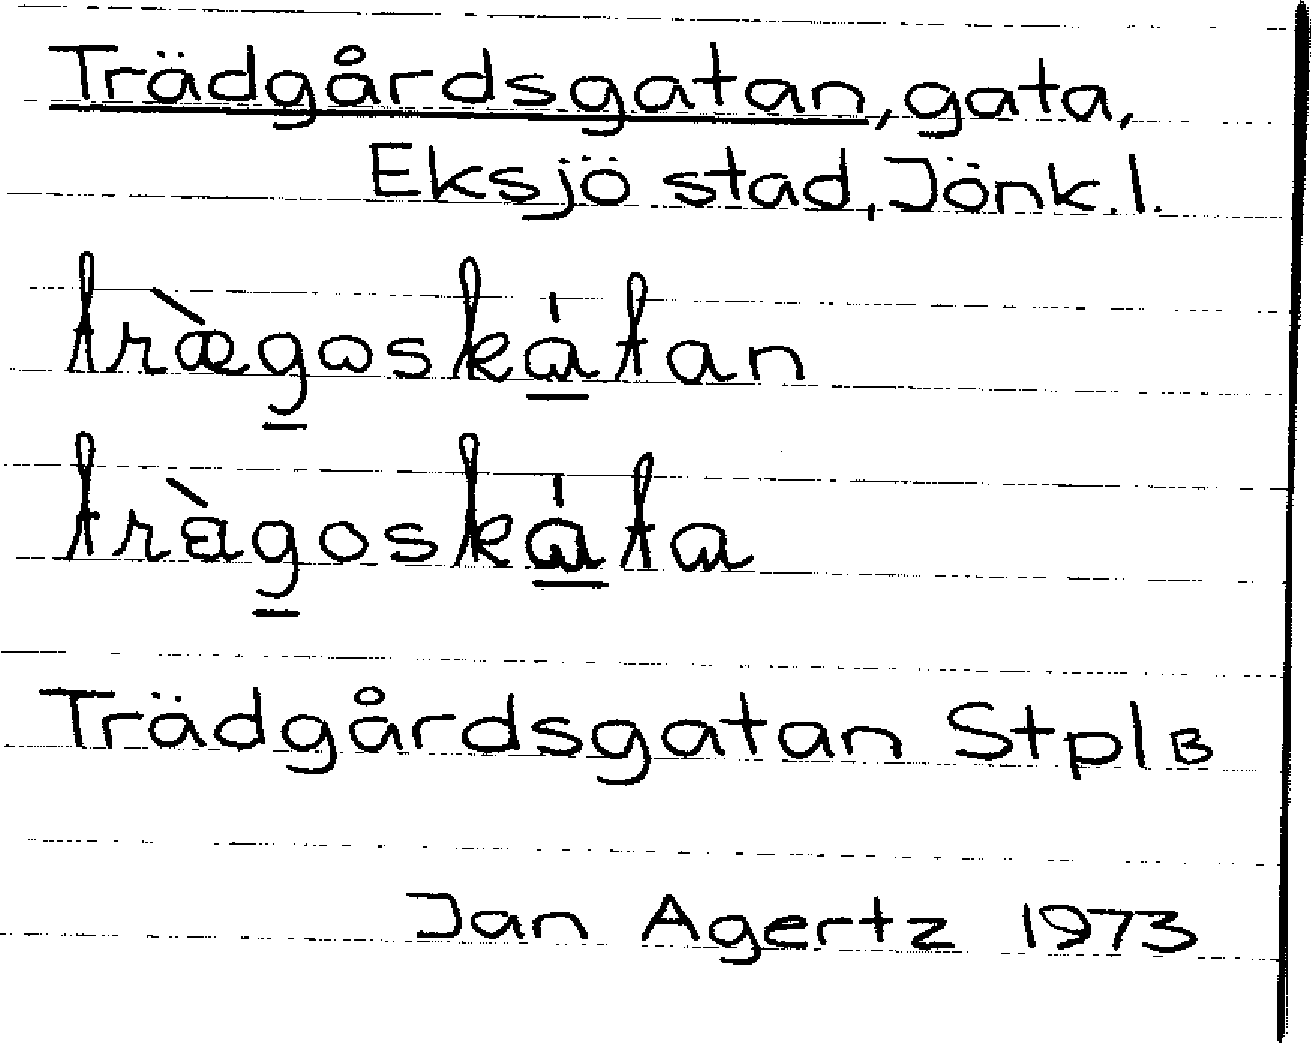 Trädgårdsgatan, gata,
Eksjö stad, Jönk. l.
træ̀gɷskɑ́tan
tràgoskɑ́ta
Trädgårdsgatan Stpl B
Jan Agertz 1973